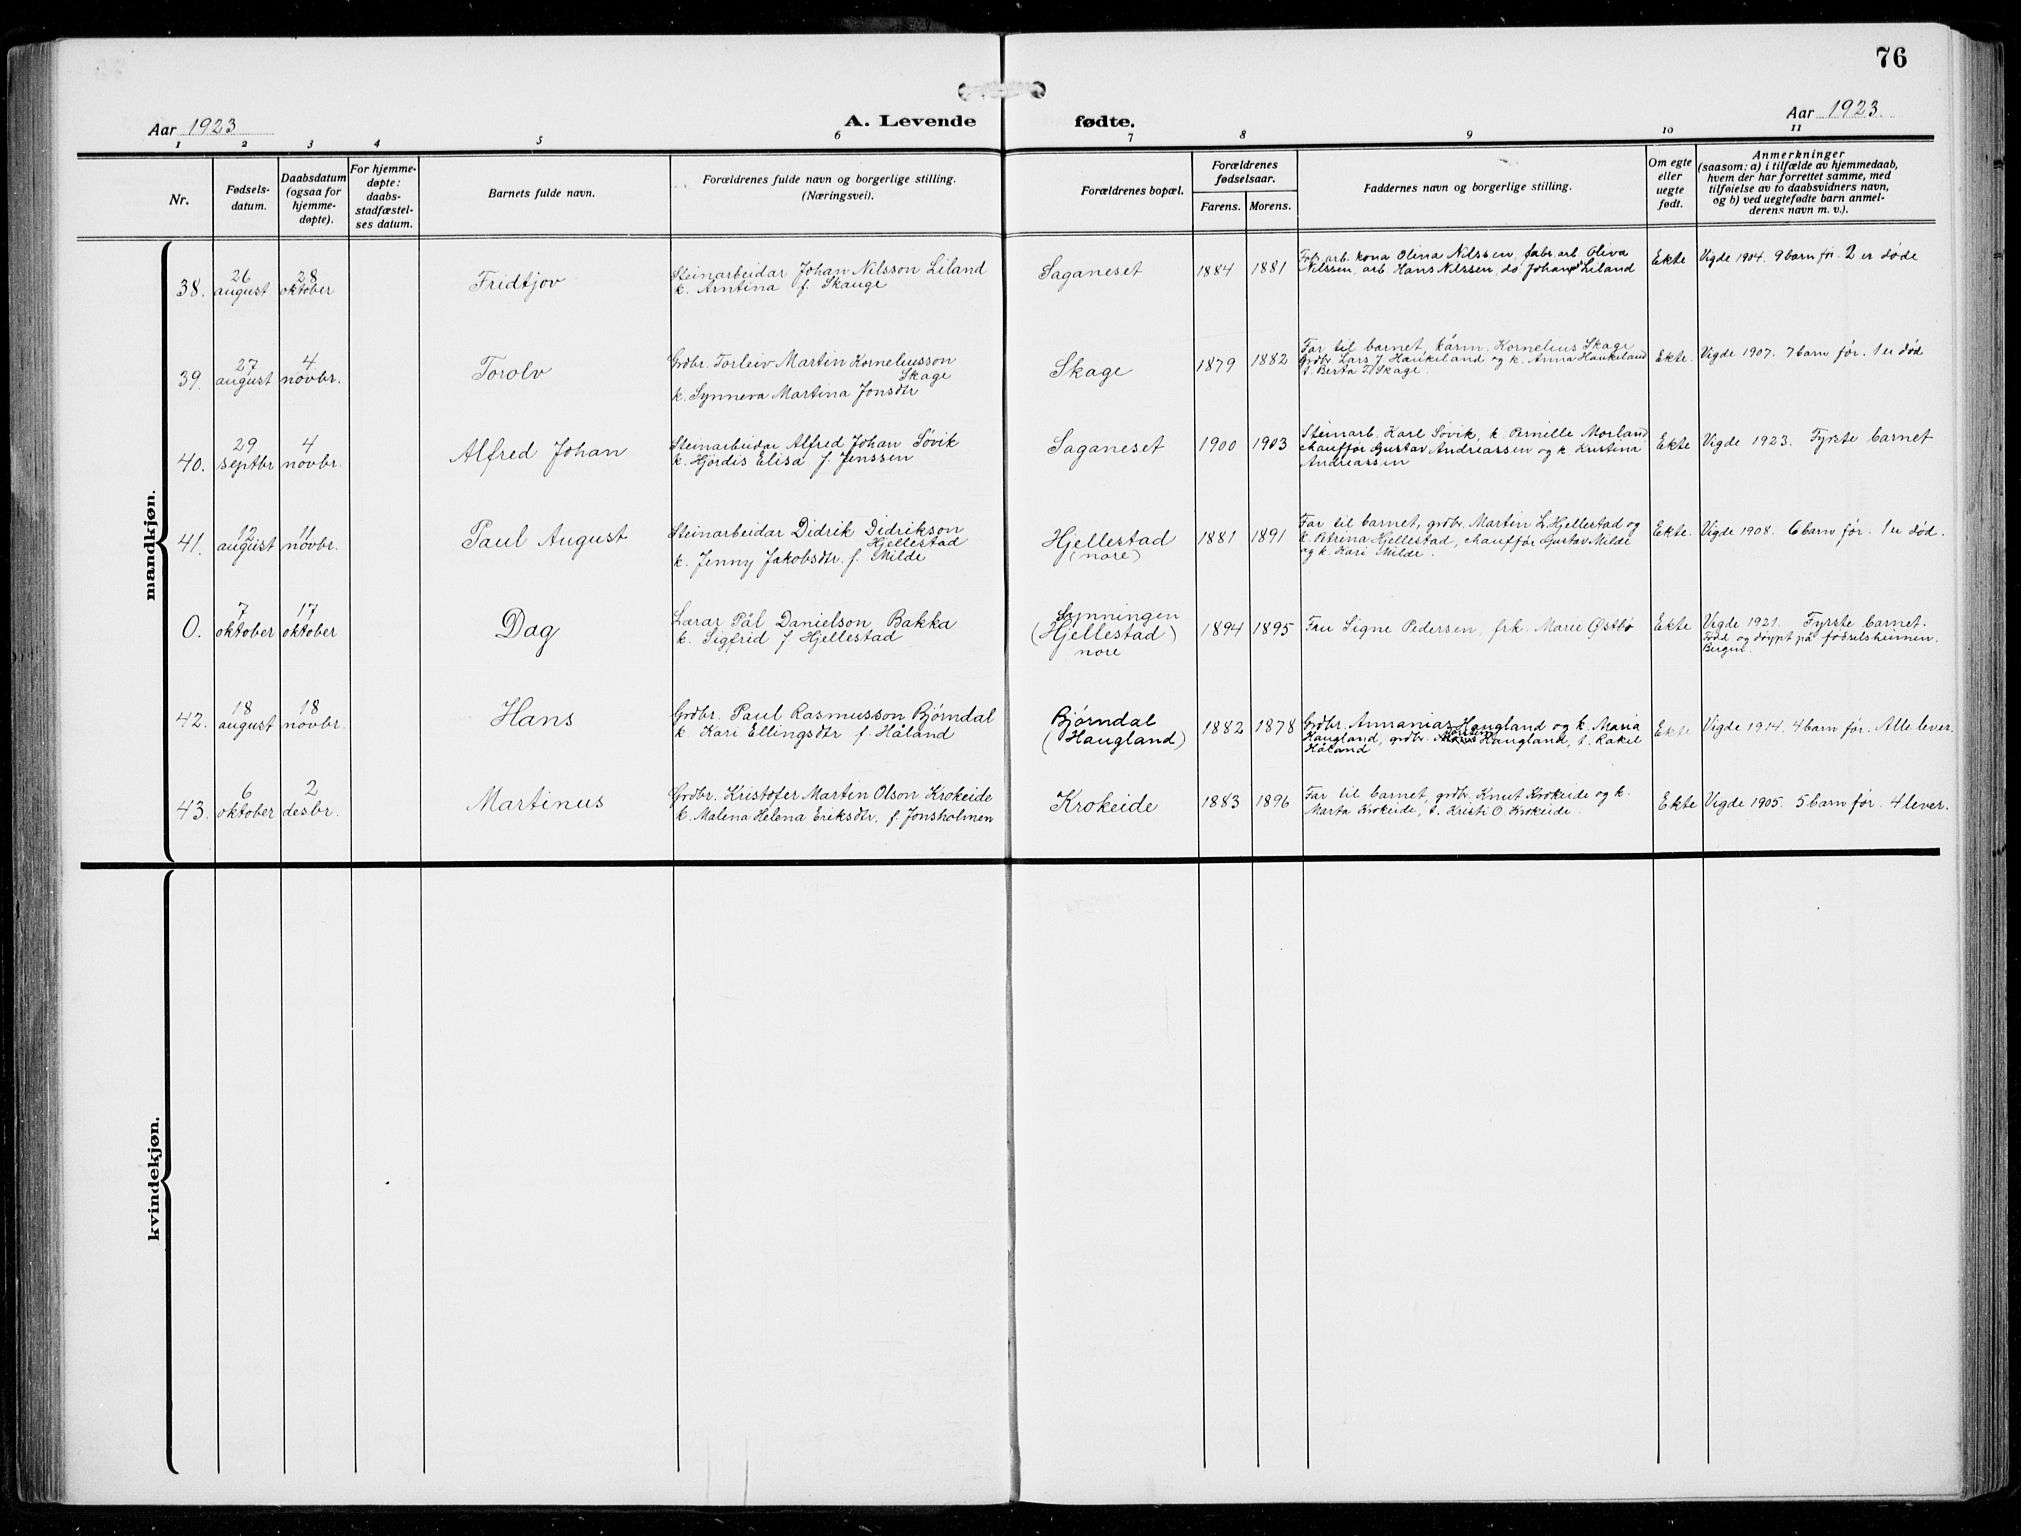 76
Aar 1923
A. Levende fødte.
Aar 1923.
1 2 3 4 5 6 7 8 9 10 11
Nr.
Fødsels-
datum.
Daabsdatum
(ogsaa for
hjemme-
døpte).
For hjemme-
døpte:
daabs-
stadfæstel-
ses datum.
Barnets fulde navn.
Forældrenes fulde navn og borgerlige stilling.
(Næringsvei).
Forældrenes bopæl.
Forældrenes
fødselsaar.
Farens. Morens.
Faddernes navn og borgerlige stilling.
Om egte
eller
uegte
født.
Anmerkninger
(saasom: a) i tilfælde av hjemmedaab,
hvem der har forrettet samme, med
tilføielse av to daabsvidners navn,
og b) ved uegtefødte barn anmel-
derens navn m. v.).
mandkjøn.
38.
26
august
28
oktober
Fridtjov
Steinarbeidar Johan Nilsson Liland
k. Arntina f. Skauge
Saganeset
1884 1881
Fabr. arb. kona Olina Nilssen, fabr. arb. Oliva
Nilssen, arb. Hans Nilssen, do Johan Liland
Ekte
Vigde 1904. 9 barn før. 2 er døde
39.
27
august
4
novbr.
Torolv
Grdbr. Torleiv Martin Korneliusson
Skage
k. Synneva Martina Jonsdtr
Skage
1879 1882
Far til barnet, kårm. Kornelius Skage
Grdbr. Lars J. Haukeland og k. Anna Haukeland
t. Berta T. Skage.
Ekte.
Vigde 1907. 7 barn før. 1 er død
40.
29
septbr
4
novbr.
Alfred Johan
Steinarbeidar Alfred Johan Søvik
k. Hjørdis Elisa f. Jenssen
Saganeset
1900 1903
Steinarb. Karl Søvik, k. Pernille Morland
chauffør Gustav Andreassen og k. Kristina
Andreassen
Ekte
Vigde 1923. Fyrste barnet
41.
12
august
11
novbr.
Paul August
Steinarbeidar Didrik Didrikson
Hjellestad
k. Jenny Jakobsdtr. f. Milde
Hjellestad
(nore)
1881 1891
Far til barnet, grdbr. Martin L. Hjellestad og
k. Petrina Hjellestad, chauffør Gustav Milde
og k. Kari Milde.
Ekte.
Vigde 1908. 6 barn før. 1 er død.
0.
7
oktober
17
oktober
Dag
Lærar Pål Danielson Bakka
k. Sigfrid f Hjellestad
Synningen
(Hjellestad)
nore
1894 1895
Fru Signe Pedersen, frk. Marie Østbø
Ekte
Vigde 1921. Fyrste barnet.
Fødd og døypt på fødselsheimen,
Bergen.
42.
18
august
18
novbr.
Hans
Grdbr. Paul Rasmusson Bjørndal
k. Kari Ellingsdtr f. Håland
Bjørndal
(Haugland)
1882 1878
Grdbr. Annanias Haugland og k. Maria
Haugland, grdbr. Haugland, t. Rakel
Håland
Ekte
Vigde 1914. 4 barn før. Alle lever.
43.
6
oktober
2
desbr.
Martinus
Grdbr. Kristofer Martin Olson Krokeide
k. Malena Helena Eriksdtr. f. Jonsholmen
Krokeide
1883 1896
Far til barnet, grdbr. Knut Krokeide og k.
Marta Krokeide, t. Kristi O. Krokeide.
Ekte
Vigde 1905. 5 barn før. 4 lever.
kvindekjøn.